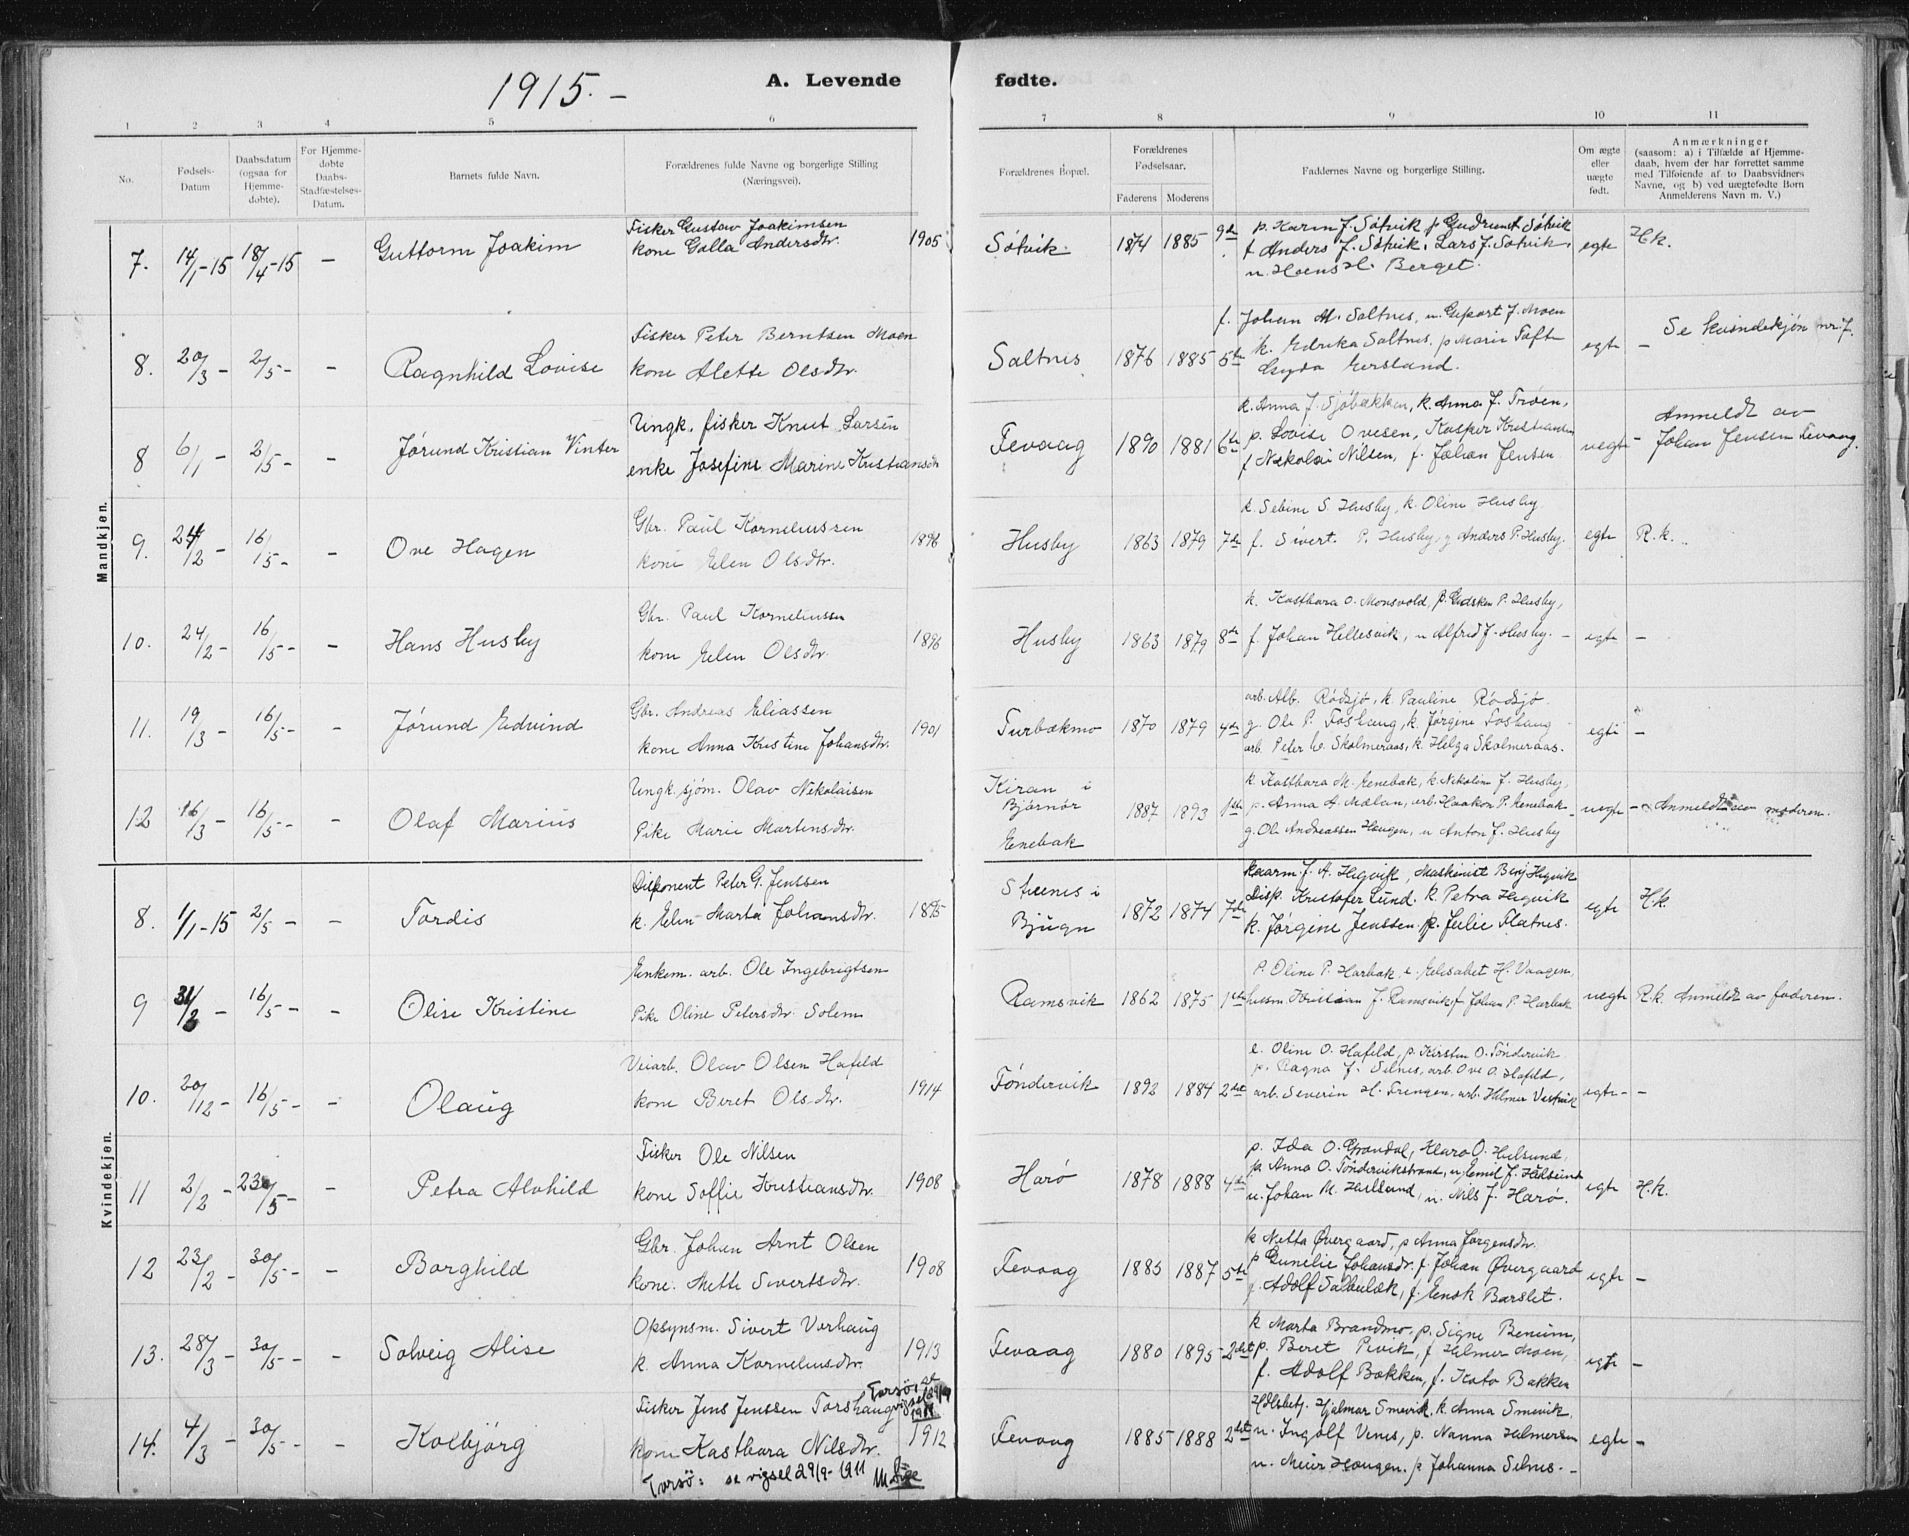 1915. -
A. Levende fødte.
1 2 3 4 5 6 7 8 9 10 11
No.
Fødsels-Datum
Daabsdatum (ogsaa for Hjemme-døbte).
For Hjemme-døbte Daabs-Stadfæstelses-Datum.
Barnets fulde Navn.
Forældrenes fulde Navne og borgerlige Stilling (Næringsvei).
Forældrenes Bopæl.
Forældrenes Fødselsaar.
Faderens Moderens
Faddernes Navne og borgerlige Stilling.
Om ægte eller uægte født.
Anmærkninger
(saasom: a) i Tilfælde af Hjemme-daab, hvem der har forrettet samme med Tilføiende af to Daabsvidners Navne, og b) ved uægtefødte Born Anmelderens Navn m. V.)
Mandkjøn.
7. 14/1-15 18/4-15 - Guttorm Joakim
Fisker Gustav Joakimsen
kone Galla Andersdtr. 1905
Søtvik. 1874 1885 9de
p. Karen J. Søtvik p Gudrun Søtvik
f Anders J. Søtvik, Lars J. Søtvik,
u. Hoens H. Berget.
egte H.k.
8. 20/3 - 2/5 - - Ragnhild Lovise
Fisker Peter Berntsen Moen
kone Alette Olsdtr.
Saltnes 1876 1885 5te
f. Johan M. Saltnes, u. J. Moen
k. Edrika Saltnes, p Marie Tøfte
Gyda
egte - Se kvindekjøn nr. 7.
8 6/1 - 2/5 - - Jørund Kristian Vinter
Ungk. fisker Knut Larsen
enke Josefine Marine Kristiansdtr
Fevaag 1890 1881 6te
k. Anna J. Sjøbakken, k. Anna J. Trøen,
p. Lovise Ovesen, Kasper Kristiansen
f Nikolai Nilsen, f. Johan Jensen
uegte - Anmeldt av
Johan Jensen Fevaag.
9. 24/12 - 16/5 - - Ove Hagen
Gbr. Paul Korneliussen
kone Elen Olsdtr. 1896
Husby 1863 1879 7de
k. Sebine S. Husby, k. Oline Husby
f. Sivert P. Husby, g Anders P. Husby.
egte R.k.
10. 24/2 - 16/5 - - Hans Husby
Gbr. Paul Korneliussen
kone Elen Olsdtr. 1896
Husby 1863 1879 8de
k. Kastbara O. Monsvold, p. P. Husby,
f. Johan Hellesvik, u Alfred J. Husby. -
egte -
11. 19/3 - 16/5 - - Jørund Edvind
Gbr. Andreas Eliassen
kone Anna Kristine Johansdtr. 1901
Turbækmo 1870 1879 4de
arb. Alb. Rødsjø, k. Pauline Rødsjø
g. Ole P. Foshaug, k. Jørgine Foshaug
arb. Peter Skolmeraas, k. Helga Skolmeraas.
egte -
12 16/3 - 16/5 - - Olaf Marius
Ungk. sjøm. Olav Nikolaisen
Pike Marie Martensdtr.
Kiran i
Bjørnør
Enebak
1887 1893 1ste
k. Kastbara M. Enebak, k. Nikoline J. Husby,
p. Anna A. Mælan, arb. Haakon P. Enebak
g. Ole Andreassen Haugen, u Anton J. Husby
uegte - Anmeldt av moderen.
Kvindekjøn.
8. 1/1-15 2/5 - - Tordis
Disponent Peter G. Jenssen
k. Elen Marta Johansdtr. 1895
i
Bjugn
1872 1874 7de
J. A. Høgvik, Maskinist Høgvik
Disp. Kristofer Lund, k. Petra Høgvik
k. Jørgine Jenssen, p. Julie Flatnes.
egte H.k.
9 31/ - 16/5 - - Olise Kristine
Enkem. arb. Ole Ingebrigtsen
Pike Oline Petersdtr. Solem
Ramsvik 1862 1875 1ste
P. Oline P. Harbak, e. Elisabet H. Vaagen,
husm Kristian J. Ramsvik, f Johan P. Harbak
uegte R.k. Anmeldt av faderen.
10. 20/12 - 16/5 - - Olaug
Veiarb. Olav Olsen Hafeld
kone Beret Olsdtr. 1914
Tøndervik 1892 1884 2det
e. Oline O. Hafeld, p. Kirsten O. Tøndervik
p. Ragna J. Selnes, arb. Ove O. Hafeld,
arb. Severin H. Trengen, arb. Helmer Vestvik
egte - -
11 2/2 - 23/5 - - Petra Alvhild
Fisker Ole Nilsen
kone Soffie Kristiansdtr. 1908
Harø 1878 1888 4de
p. Ida O. Grøndal, Klara O. Hulsund,
p. Anna O. Tøndervikstrand, u. Emil J.
u. Johan M. u. Nils J. Harø.
egte H.k.
12 23/2 - 30/5 - - Borghild
Gbr. Johan Arnt Olsen
kone. Mette Sivertsdtr. 1908
Fevaag 1885 1887 5te
k Netta Øvergaard, p Anna Jørgensdtr.
p Gunelie Johansdtr. f. Johan Øvergaard
g. Adolf Salbubæk, f. Enok Barslet.
egte -
13. 28/3 - 30/5 - - Solveig Alise
Opsynsm. Sivert Vorhaug
k. Anna Kornelusdtr. 1913
Fevaag 1880 1895 - 2det
k Marta Brandmo, p. Signe Benum,
p. Beret Pevik, f Helmer Moen,
f. Adolf Bakken, f. Kato Bakken
egte -
14. 4/3 - 30/5 - - Kolbjørg
Torsø, se vigsel 29/9 1911
Fisker Jens Jenssen Torshaug
kone Kastbara Nilsdtr. 1912
Torsø: se vigsel 29/9-1911
Fevaag 1885 1888 2det
Hjalmar Smevik, k Anna Smevik,
u. Ingolf Venes, p. Nanna Helmersen
u. Meier Haugen, p Johanna Selnes. -
egte -